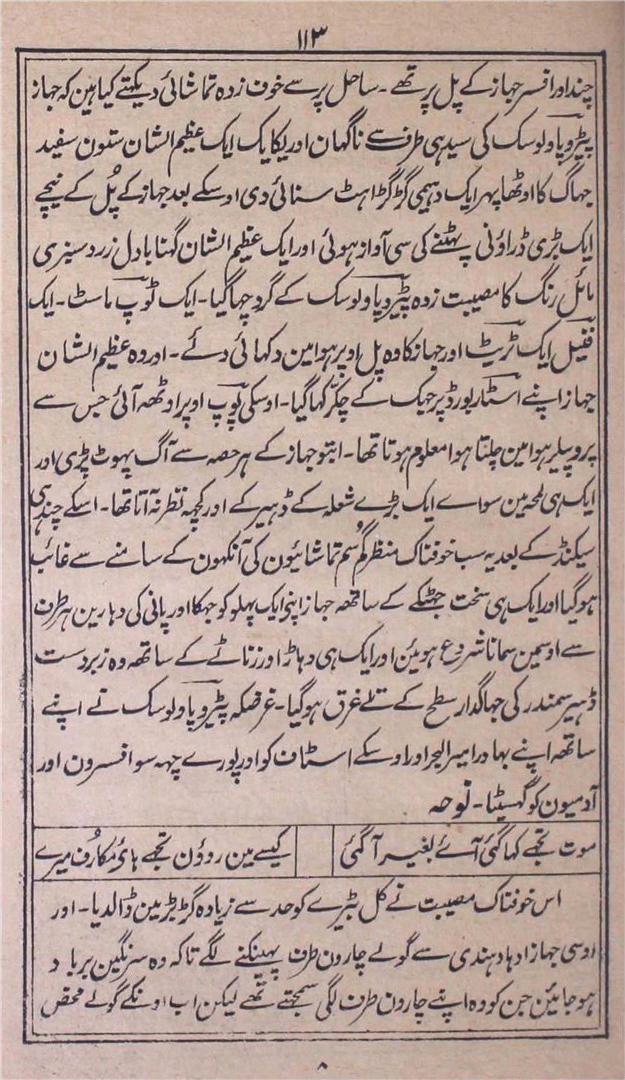 ۱۱۳
چند اور افسر جہاز کے پل پر تھے۔ ساحل پر سے خوف زدہ تماشائی دیکہتے کیا ہین کہ جہاز
پیٹروپاولوسک کی سیدہی طرف سے ناگہان اور یکایک ایک عظیم الشان ستون سفید
جہاگ کا اوٹھا پہر ایک دہیمی گڑگڑاہٹ سنائی دی اوسکے بعد جہاز کے پُل کے نیچے
ایک بڑی ڈراؤنی پہٹنے کی سی آواز ہوئی اور ایک عظیم الشان گہنا بادل زرد سبزی
مائل رنگ کا مصیبت زدہ پیٹروپاولوسک کے گرد چہا گیا۔ ایک ٹوپ ماسٹ۔ ایک
فنیل ایک ٹریٹ اور جہاز کا وہ پل اوپر ہوا مین دکہائی دئے۔ اور وہ عظیم الشان
جہاز اپنے اسٹاربورڈ پر جہک کے چکر کہا گیا۔ اوسکی پوپ اوپر اوٹھہ آئی جس سے
پروپیلر ہوا مین چلتا ہوا معلوم ہوتا تھا۔ ابتو جہاز کے ہر حصہ سے آگ پہوٹ پڑی اور
ایک ہی لمحہ مین سواے ایک بڑے شعلہ کے ڈہیر کے اور کچہہ نظر نہ آتا تھا۔ اسکے چند ہی
سیکنڈ کے بعد یہ سب خوفناک منظر گُم سُم تماشائیون کی آنکہون کے سامنے سے غائب
ہو گیا اور ایک ہی سخت جھٹکے کے ساتھہ جہاز اپنی ایک پہلو کو جہکا اور پانی کی دہارین ہر طرف
سے اوسمین سمانا شروع ہوئین اور ایک ہی دہاڑ اور زناٹے کے ساتھہ وہ زبردست
ڈہیر سمندر کی جہاگدار سطح کے تلے غرق ہو گیا۔ غرضکہ پیٹروپاولوسک نے اپنے
ساتھہ اپنے بہادر امیر البحر اور اوسکے اسٹاف کو اور پورے چہہ سو افسرون اور
آدمیون کو گہسیٹا۔ نوحہ
موت تجھے کہا گئی آئے بغیر آ گئی کیسے مین روؤن تجھے ہائ مکارُف میرے
اس خوفناک مصیبت نے کل بیڑے کو حد سے زیادہ گڑبڑ مین ڈالدیا۔ اور
روسی جہاز ادہا دہندی سے گولے چارون طرف پہینکنے لگے تاکہ وہ سرنگین برباد
ہو جائین جن کو وہ اپنے چارون طرف لگی سمجہتے تھے لیکن اب اونکے گولے محض
۸